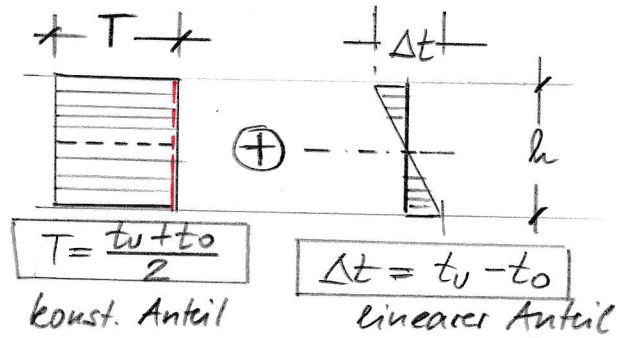 T
Δt
h
T = (tu + to) / 2
Δt = tu - to
konst. Anteil
linearer Anteil